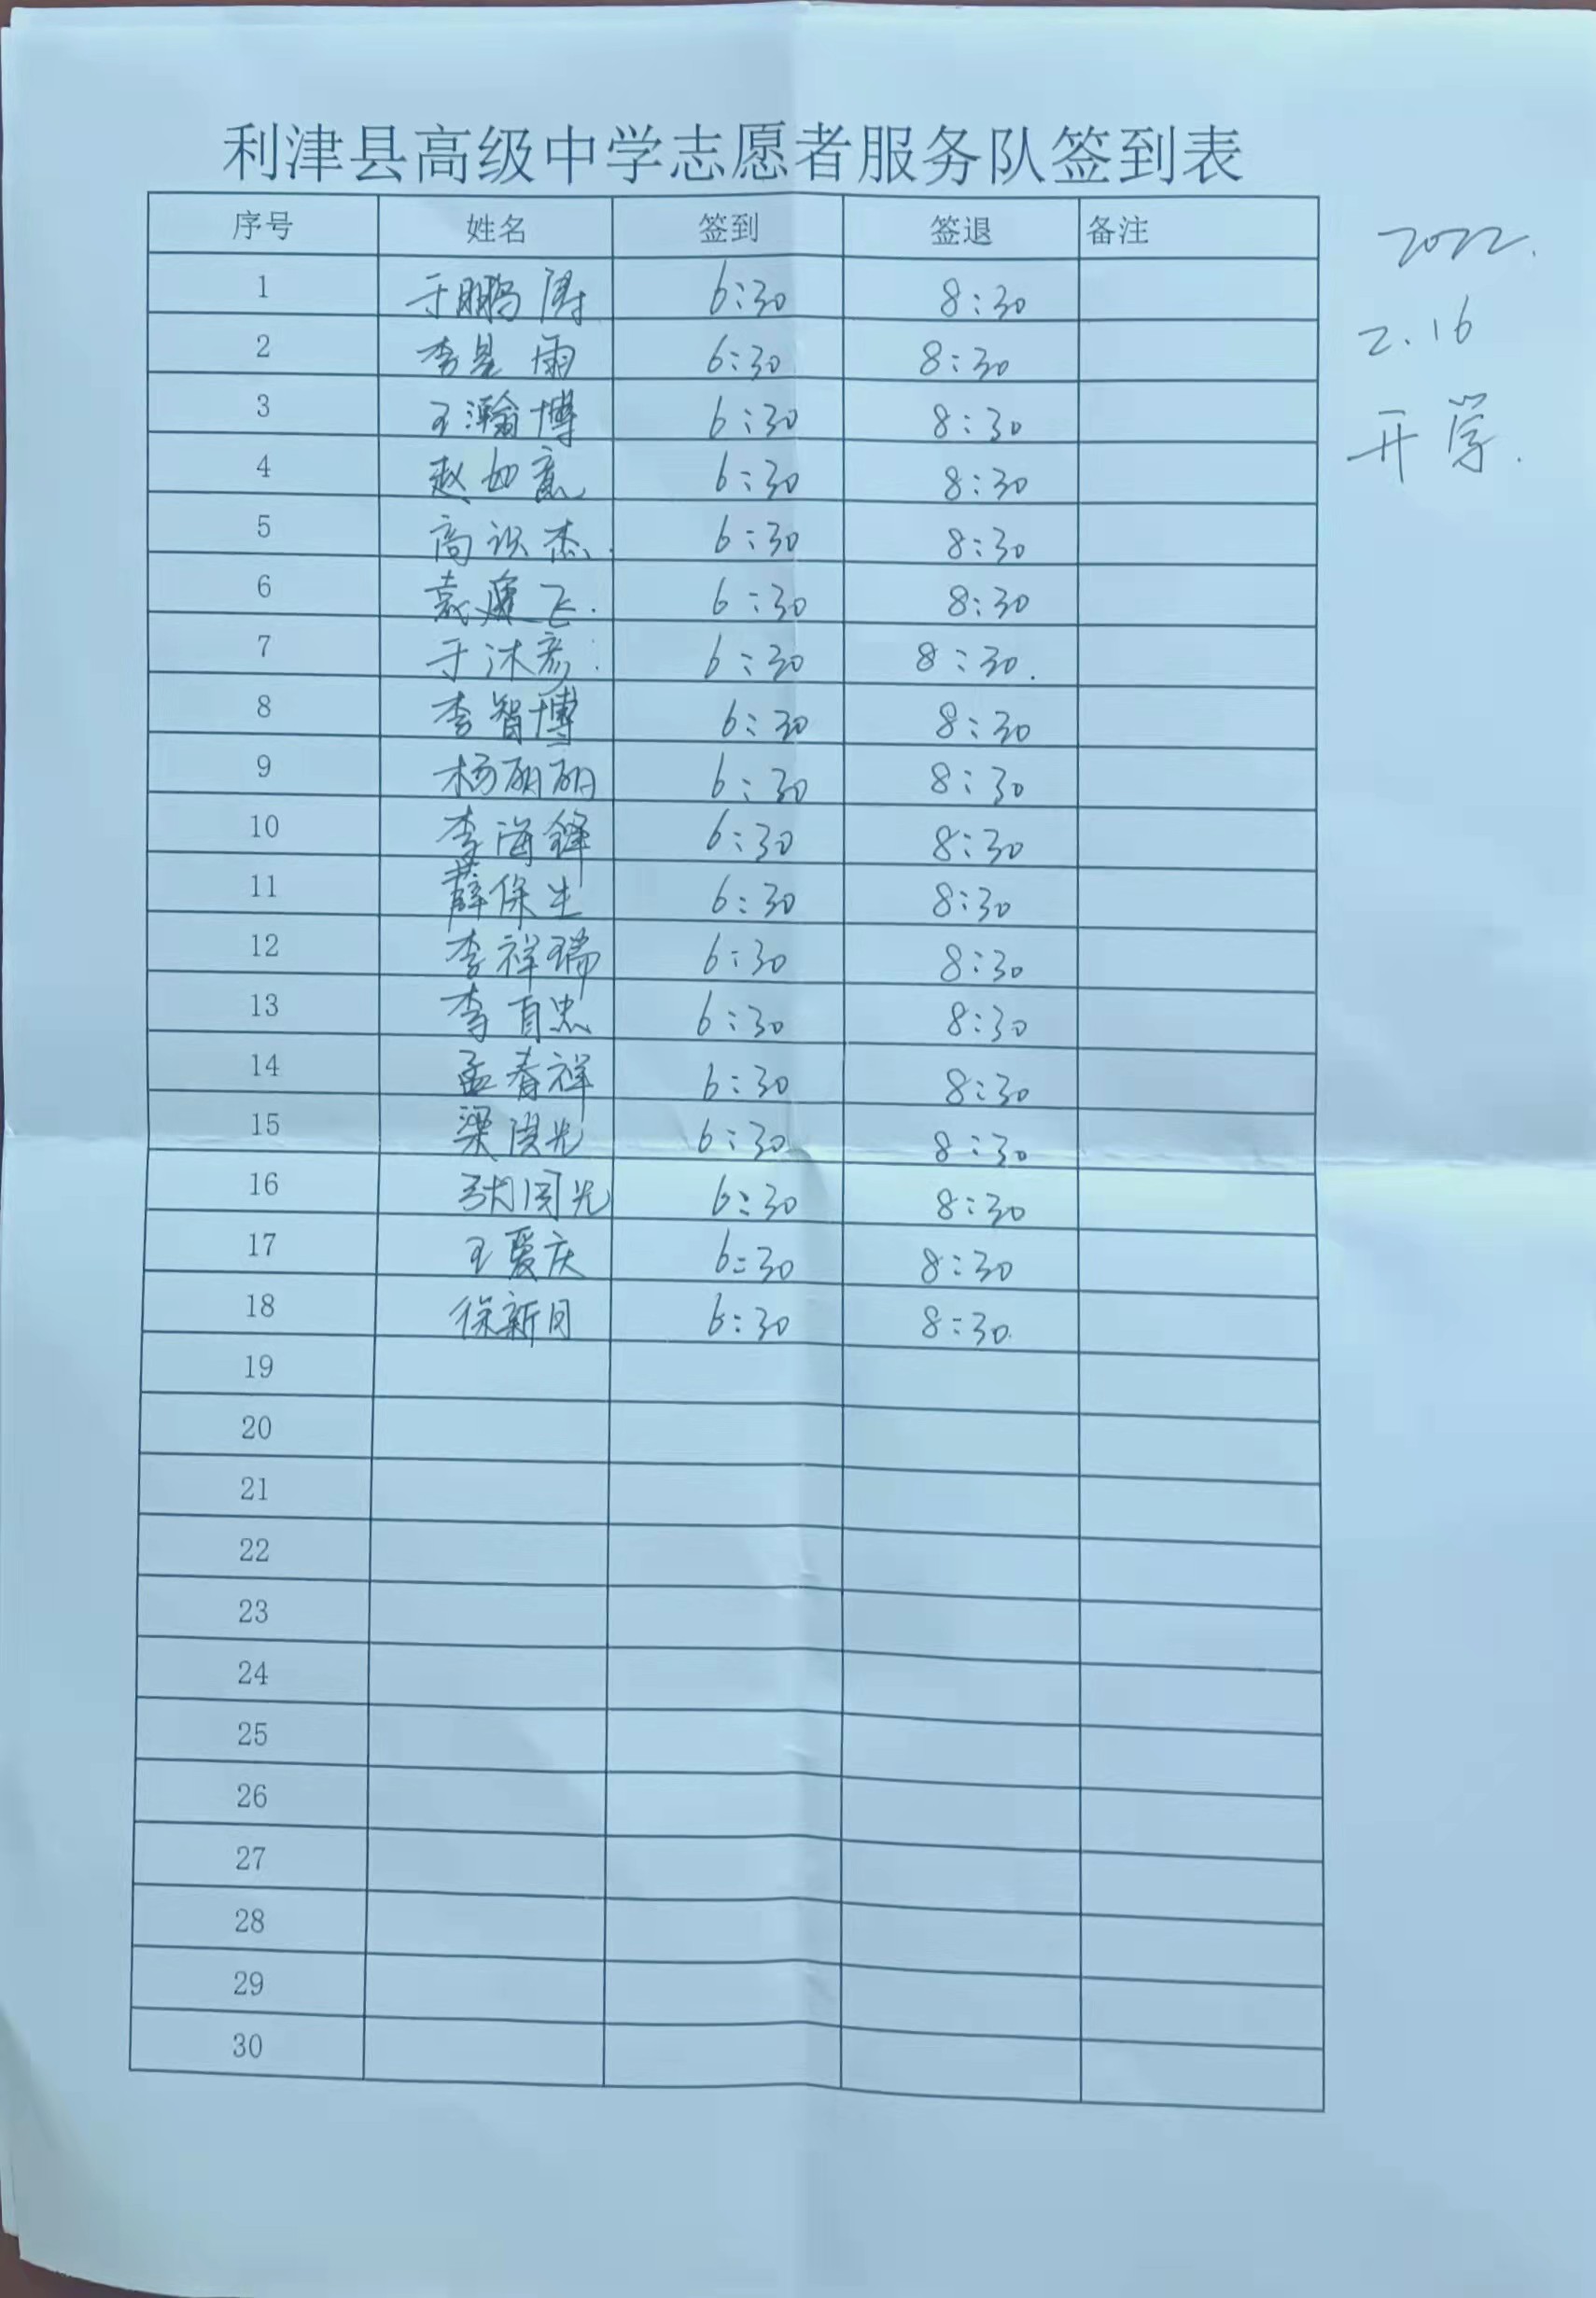 利津县高级中学志愿者服务队签到表
序号 姓名 签到 签退 备注
2022.
2.16
开学.
1 于鹏涛 6:30 8:30
2 李星雨 6:30 8:30
3 王瀚博 6:30 8:30
4 赵如意 6:30 8:30
5 高识杰. 6:30 8:30
6 袁建飞. 6:30 8:30
7 于沐彦 6:30 8:30.
8 李智博 6:30 8:30
9 杨丽丽 6:30 8:30
10 李海锋 6:30 8:30
11 薛保生 6:30 8:30
12 李祥瑞 6:30 8:30
13 李百忠 6:30 8:30
14 孟春祥 6:30 8:30
15 梁洪光 6:30 8:30
16 6:30 8:30
17 王爱庆 6:30 8:30
18 徐新月 6:30 8:30.
19
20
21
22
23
24
25
26
27
28
29
30